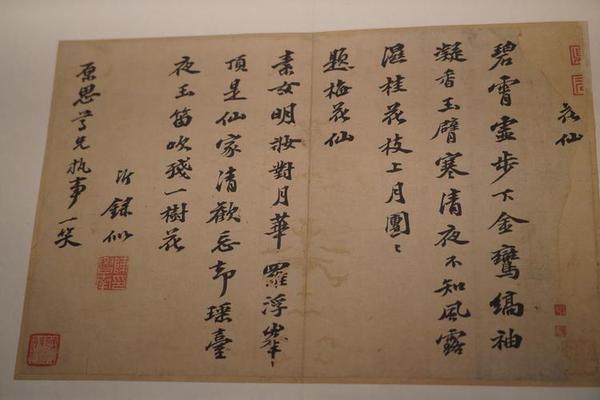 花仙
碧霄虛步下金鸞縞袖
凝香玉臂寒清夜不知風露
濕桂花枝上月團〻
題梅花仙
素女明妝對月華羅浮峯
頂是仙家清歡忘却瑤臺
夜玉笛吹殘一樹花
錄似
原思尊兄執事一笑